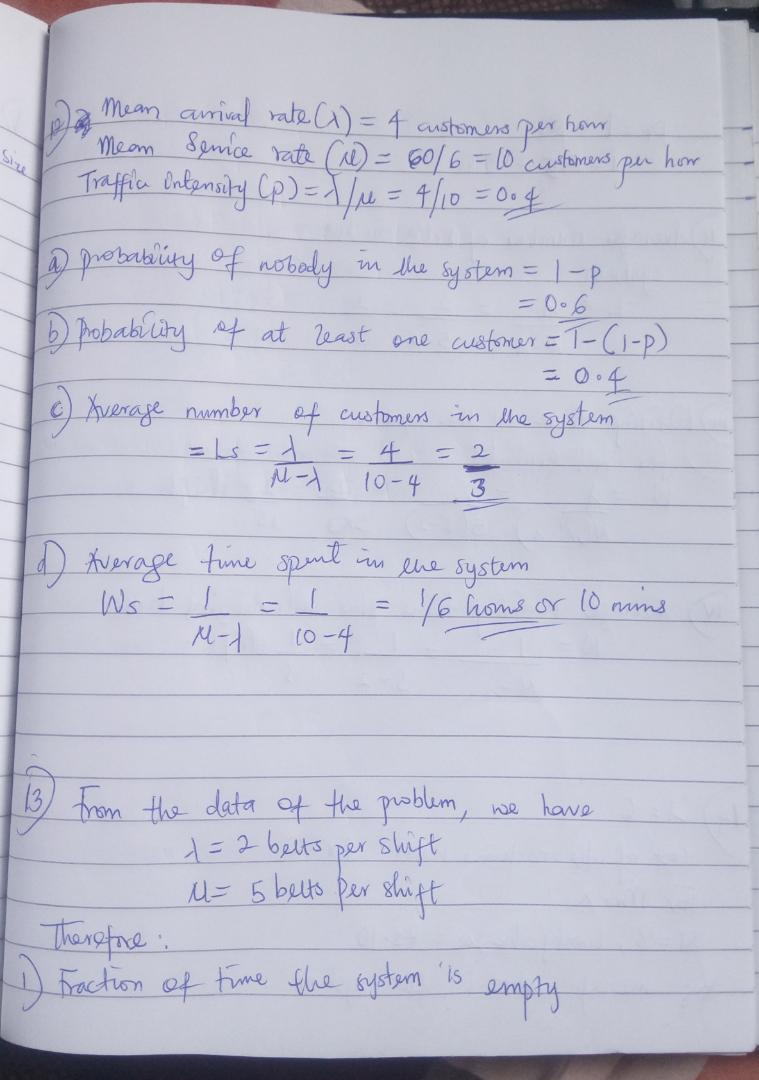 Size
12) Mean arrival rate (λ) = 4 customers per hour
Mean Service rate (μ) = 60/6 = 10 customers per hour
Traffic Intensity (ρ) = λ/μ = 4/10 = 0.4
a) probability of nobody in the system = 1-ρ
= 0.6
b) Probability of at least one customer = 1-(1-ρ)
= 0.4
c) Average number of customers in the system
= Ls = λ/(μ-λ) = 4/(10-4) = 2/3
d) Average time spent in the system
Ws = 1/(μ-λ) = 1/(10-4) = 1/6 hours or 10 mins
13) From the data of the problem, we have
λ = 2 belts per shift
μ = 5 belts per shift
Therefore:
1) Fraction of time the system is empty